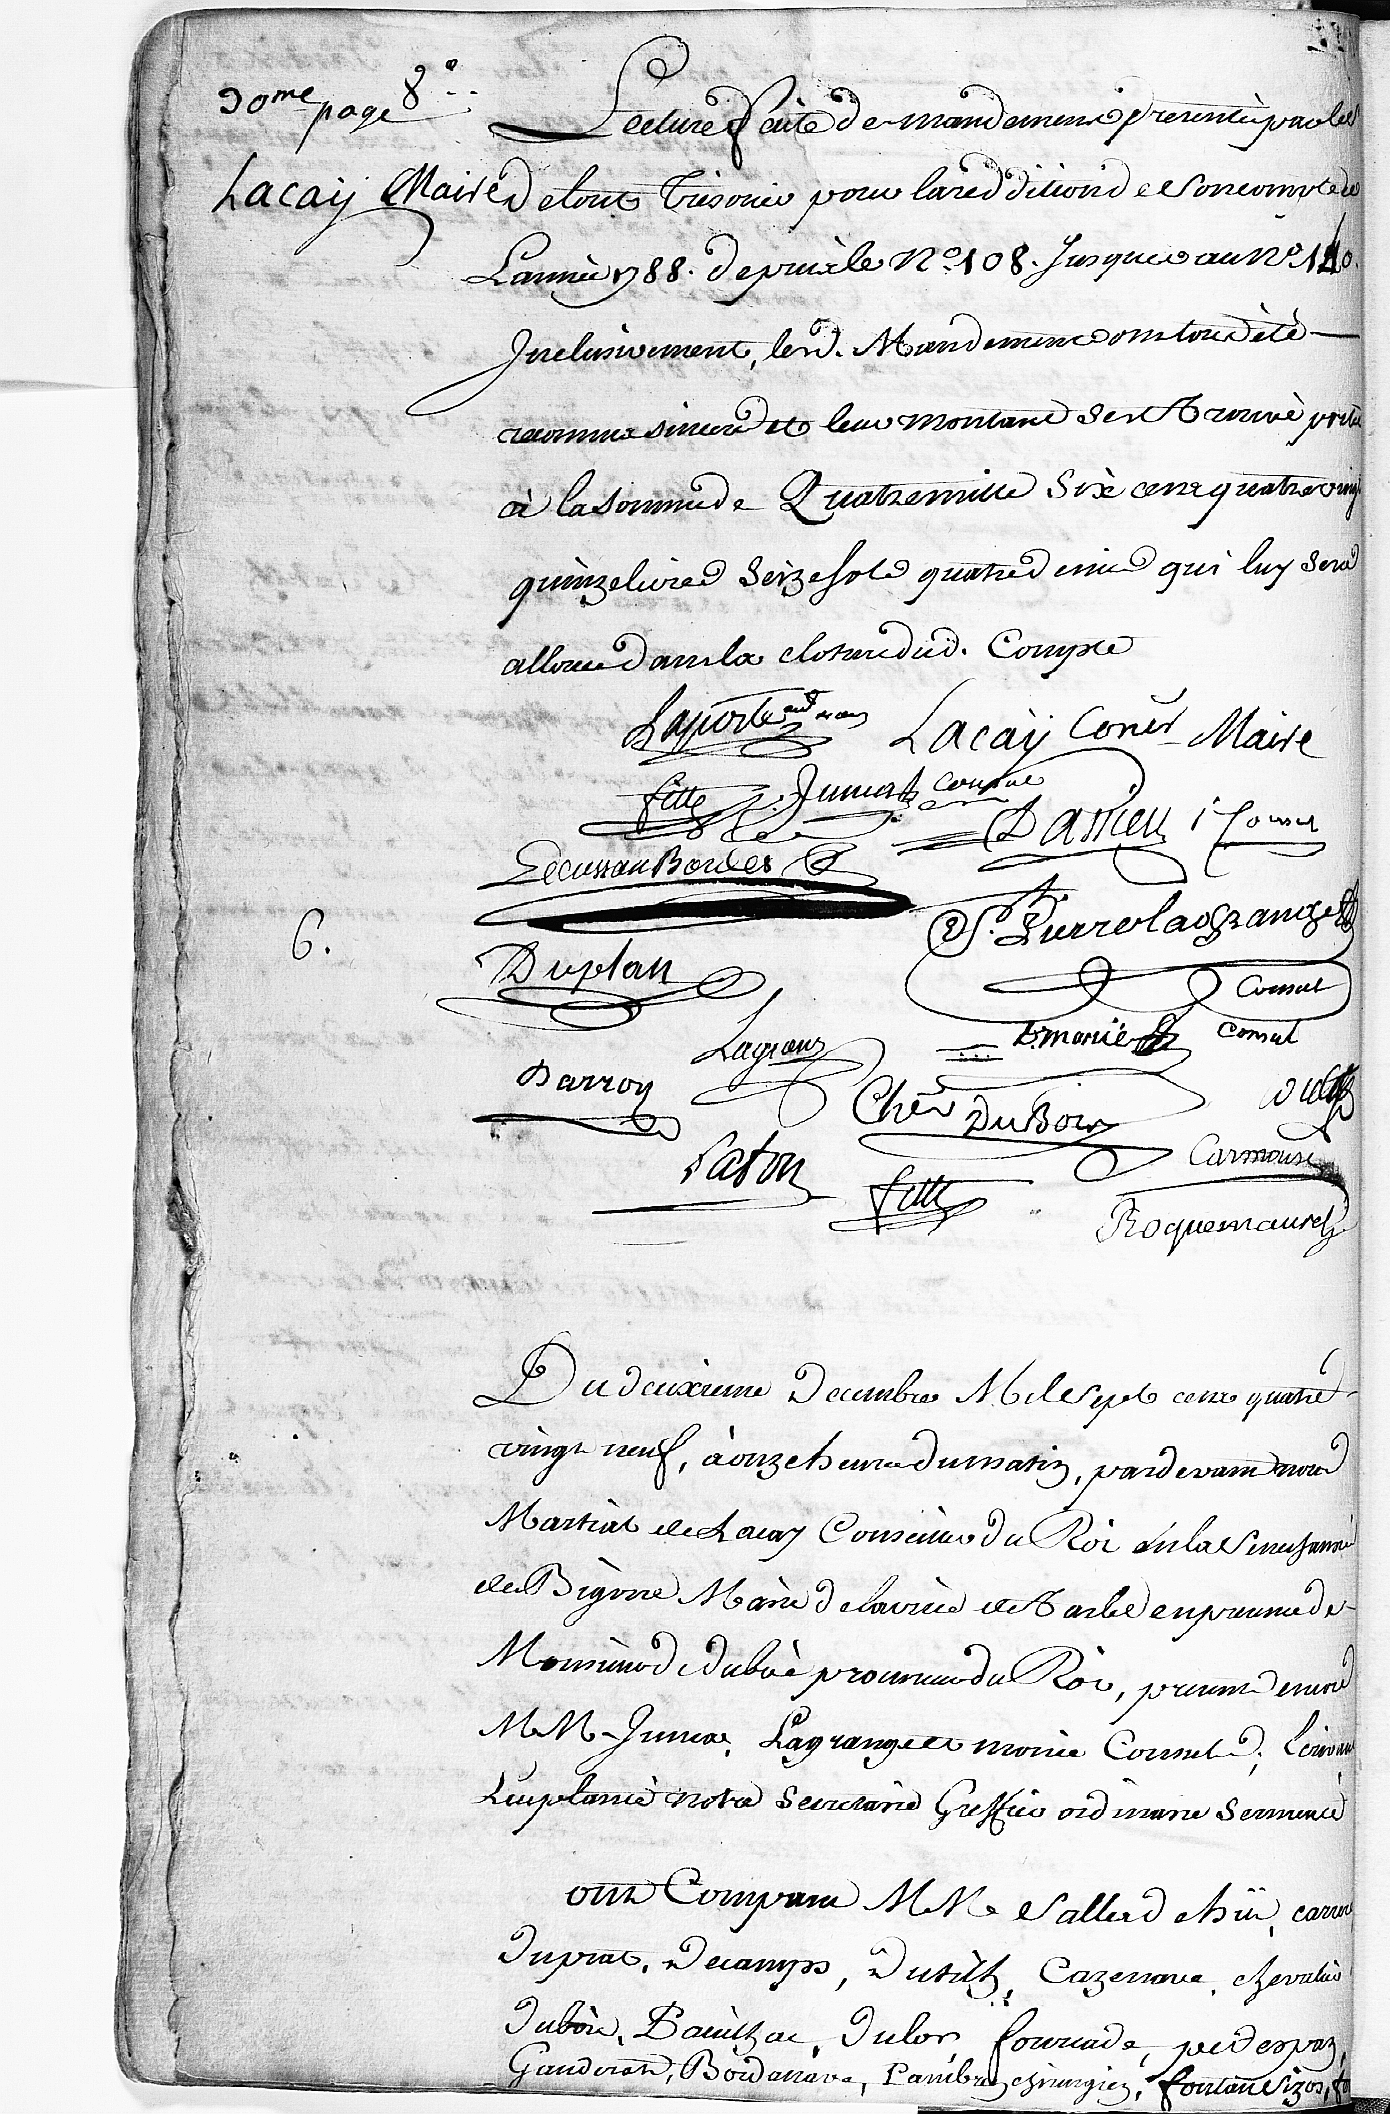 30me page 8e
Lecture faite de mandemens presentés par les
Lacay Maire
dtout Trésorier pour la reddition de son compte de
L'année 1788. depuis le No. 108. Jusques au No. 140.
Inclusivement, lesd. Mandemens ont tous été
reconnus sinceres et leur montant s'est Trouvé porté
à la somme de Quatre mille Six cens quatre vingt
quinze livres Seize sols quatre deniers qui luy sera
alloué dans la cloture dud. Compte
Laporte
Lacay Coner Maire
fitte Junca Consul
Dasieu 1r Consul
Lecussan Bordes
St. Pierre lagrange
6.
Duplan
Consul
Lagrange
monié Consul
Darroy
Cher DuBois
Caton
Carmouse
fitte
Roquemaurel
Du deuxieme Decembre Mil Sept cens quatre
vingt neuf, à onze heures du matin, pardevant nous
Martial de Lacay Conseiller du Roi en la Senechaussée
de Bigorre Maire de la ville de Tarbes en presence de
Monsieur de dubié procureur du Roi, presens encore
MM. Junca, Lagrange et monié Consuls, Ecrivant
notre Secretaire Greffier ordinaire Sermenté
ont Comparu MMrs Salles d'hiis, carrere
Duprat, Decamps, Dutilh, Cazenave, chevalier
Dubois, Dulor, fourcade,
Bordanave, chirurgien,